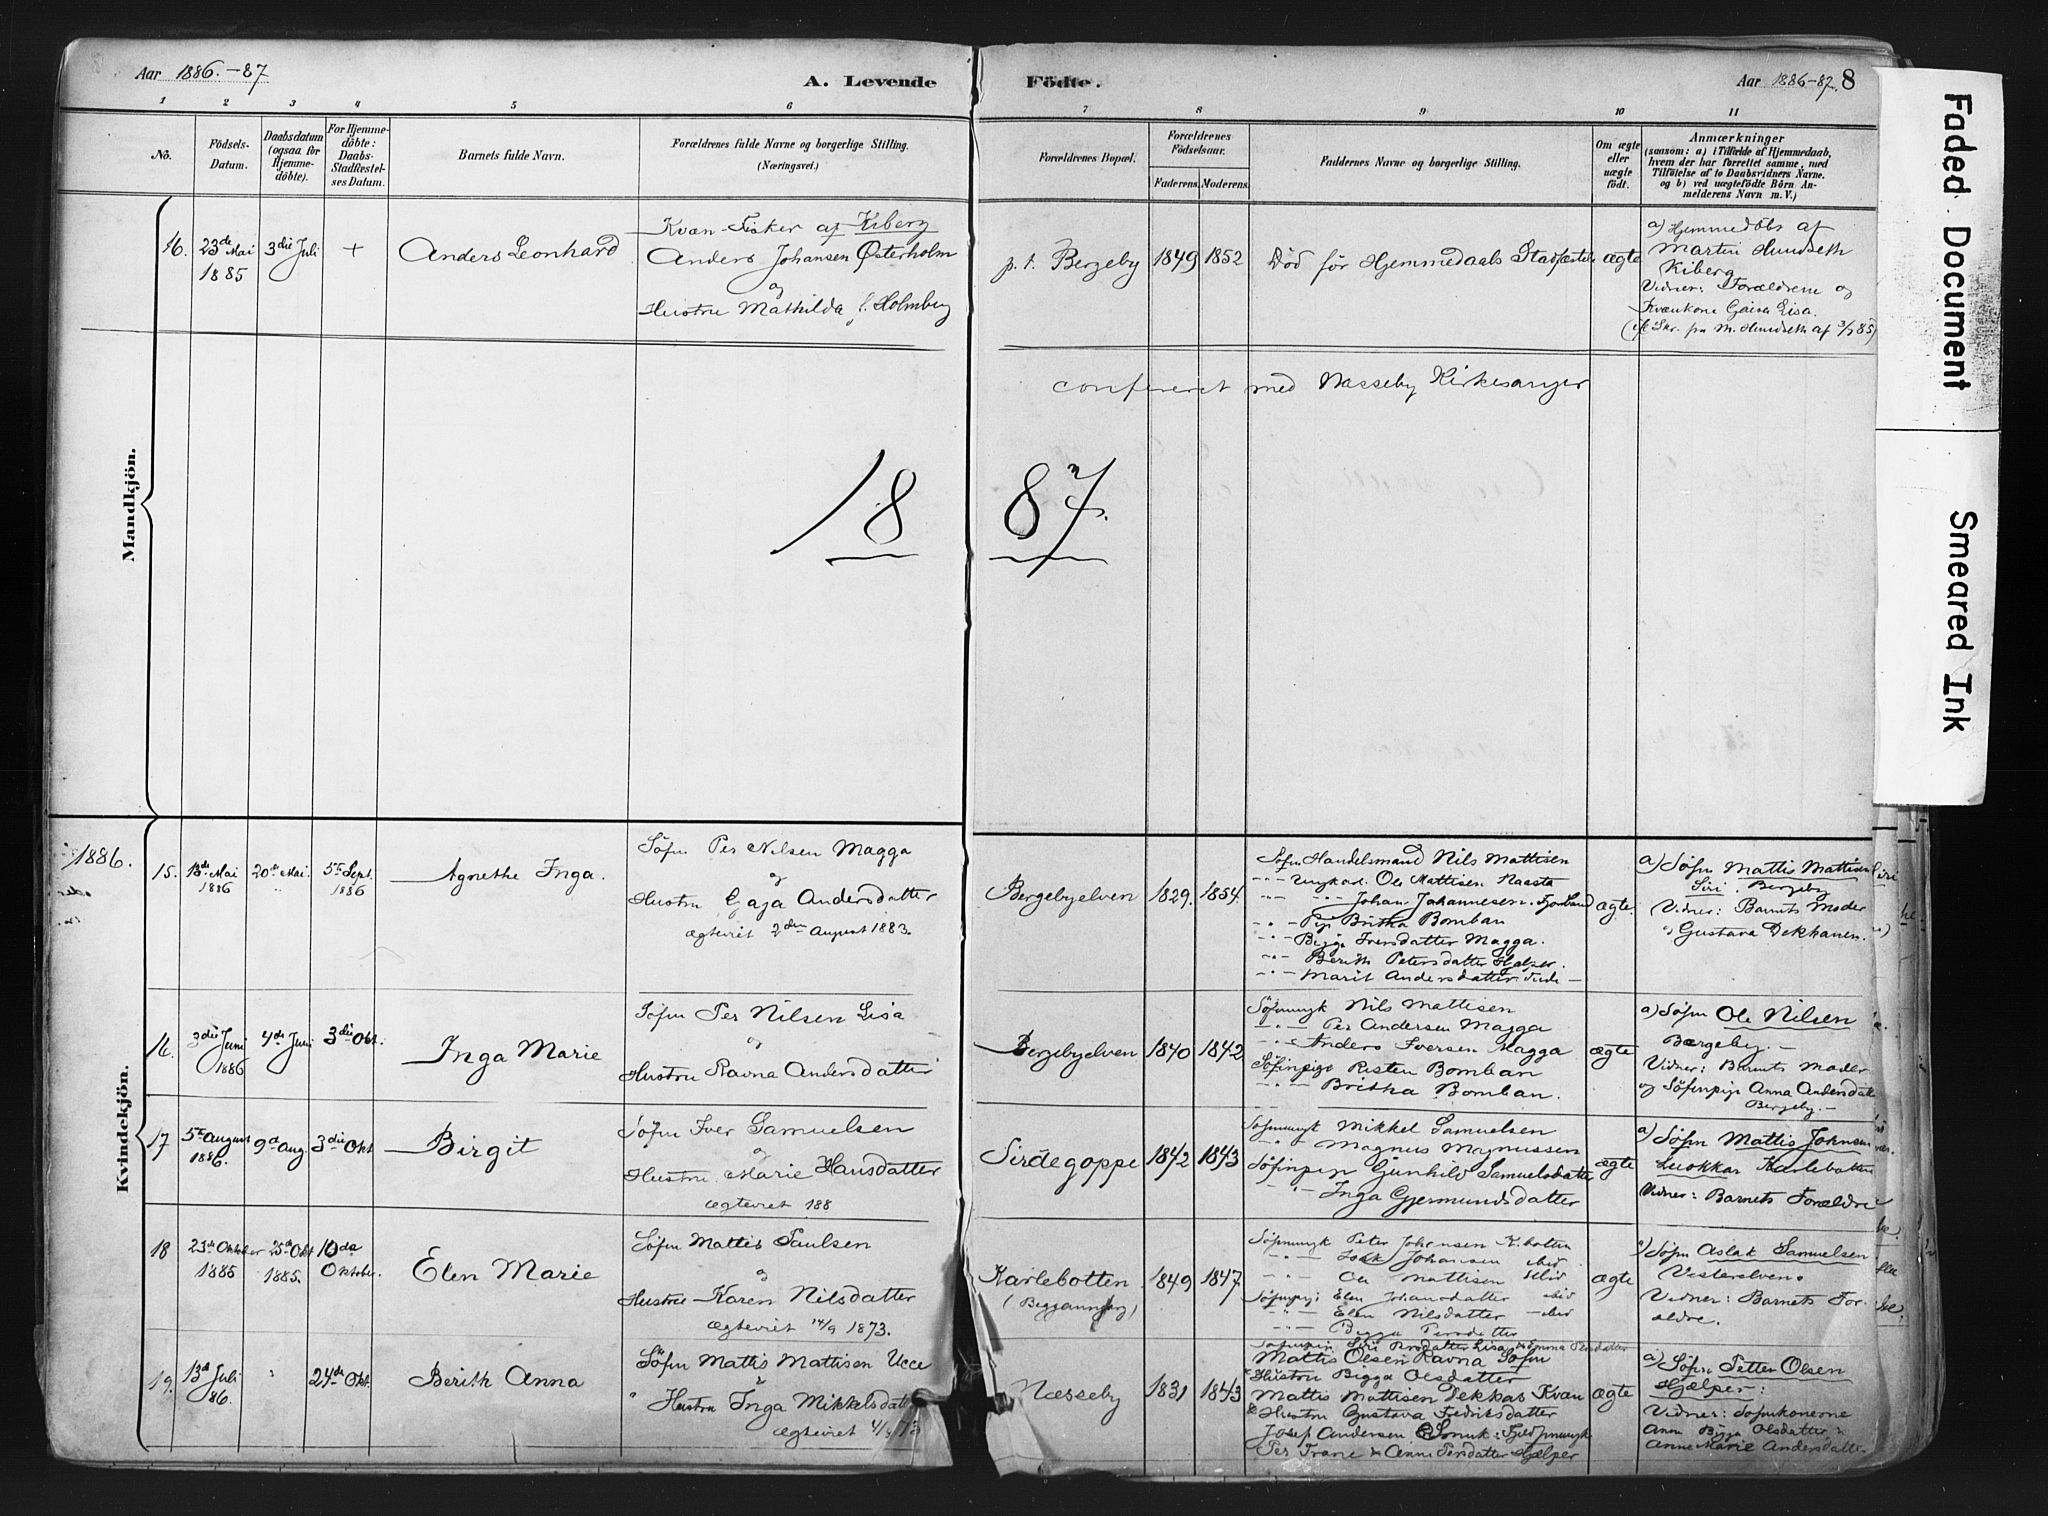 Aar 1886.-87
A. Levende
Födte.
Aar 1886-87. 8
1 2 3 4 5 6 7 8 9 10 11
No.
Födsels-
Datum.
Daabsdatum
(ogsaa for
Hjemme-
döbte).
For Hjemme-
döbte:
Daabs-
Stadfæstel-
ses Datum.
Barnets fulde Navn.
Forældrenes fulde Navne og borgerlige Stilling.
(Næringsvei.)
Forældrenes Bopæl.
Forældrenes
Födselsaar.
Faderens. Moderens.
Faddernes Navne og borgerlige Stilling.
Om ægte
eller
uægte
födt.
Anmærkninger
(saasom: a) i Tilfælde af Hjemmedaab,
hvem der har forrettet samme, med
Tilföielse af to Daabsvidners Navne,
og b) ved uægtefödte Börn An-
melderens Navn m. V.)
Mandkjön.
16.
23de Mai
1885
3die Juli
+
Anders Leonhard
Kvæn-Fisker af Kiberg
Anders Johansen Østerholm
og
Hustru Mathilda f. Holmberg
p. t. Bergeby
1849
1852
Död för Hjemmedaabs Stadfæstelse
ægte
a) Hjemmedöbt af
Martin Hundseth
Kiberg
Vidner: Forældrene og
Kvænkone Gaisa Lisa.
(cfr Skr. fra M. Hundseth af 3/7 85)
confereret med Næsseby Kirkesanger
18 87.
Kvindekjön.
1886.
15.
18de Mai
1886
20de Mai.
"
5te Sept.
1886
Agnethe Inga.
Söfin Per Nilsen Magga
og
Hustru Gaja Andersdatter
ægteviet 2den August 1883.
Bergebyelven
1829.
1854.
Söfin Handelsmand Nils Mattisen
-"- Ungkarl Ole Mattisen Naasta
-"- -"- Johan Johannesen
-"- Pige Britha Bomban
-"- Bigga Iversdatter Magga.
-"- Berith Petersdatter Hjelper.
-"- Marit Andersdatter
ægte.
a) Söfin Mattis Mattisen
Siri. Bergeby
Vidner: Barnets Moder
og Gustava Dekkanen.
16.
3die Juni
1886
4de Juni
3die Okt.
Inga Marie
Söfin Per Nilsen Lisa
og
Hustru Ravna Andersdatter
Bergebyelven
1840
1842
Söfinungk Nils Mattisen
-"- Per Andersen Magga
-"- Anders Iversen Magga
Söfinpige Risten Bomban
-"- Britha Bomban.
ægte
a) Söfin Ole Nilsen
Bærgeby.-
Vidner: Barnets Moder
og Söfinpige Anna Andersdatter
Bergeby.-
17
5te August
1886.
9d Aug.
3die Okt
Birgit
Söfin Iver Samuelsen
og
Hustru Marie Hansdatter
ægteviet 188
Sirdegoppe
1842
1843
Söfinungk Mikkel Samuelsen
-"- Magnus Magnussen
Söfinpige Gunhild Samuelsdatter
-"- Inga Gjermundsdatter
ægte
a) Söfin Mattis Johnsen
Luokkar Karlebotten
Vidner: Barnets Forældre
18
23de Oktober
1885
25de Okt
1885.
10da
Oktober.
Elen Marie
Söfin Mattis Paulsen
og
Hustru Karen Nilsdatter
ægteviet 14/9 1873.
Karlebotten
1849
1847
Söfinungk Peter Johansen K.botten
-"- Isak Johansen ibid
-"- Ole Mattisen ibid
Söfinpige Elen Johansdatter ibid
-"- Elen Nilsdatter -ibid
-"- Bigga Persdatter
ægte
a) Söfin Aslak Samuelsen
Vesterelven.
Vidner: Barnets For-
ældre.
19.
13de Juli
86.
"
24de Okt.
Berith Anna
Söfin Mattis Mattisen Ucce
&
" Hustru Inga Mikkelsdatter
ægteviet
Næsseby
1831
1843
Mattis Olsen Ravna Söfin
& Hustru Bigga Olsdatter
Mattis Mattisen Dekkas Kvæn
& Hustru Gustava Fredriksdatter
Josef Andersen
Per Frans & Anne Persdatter Hjælper
ægte
a) Söfin Petter Olsen
Hjælper:
Vidner: Söfinkonerne
Anna Bigga Olsdatter &
Anne Marie Andersdatter
Faded Document
Smeared Ink